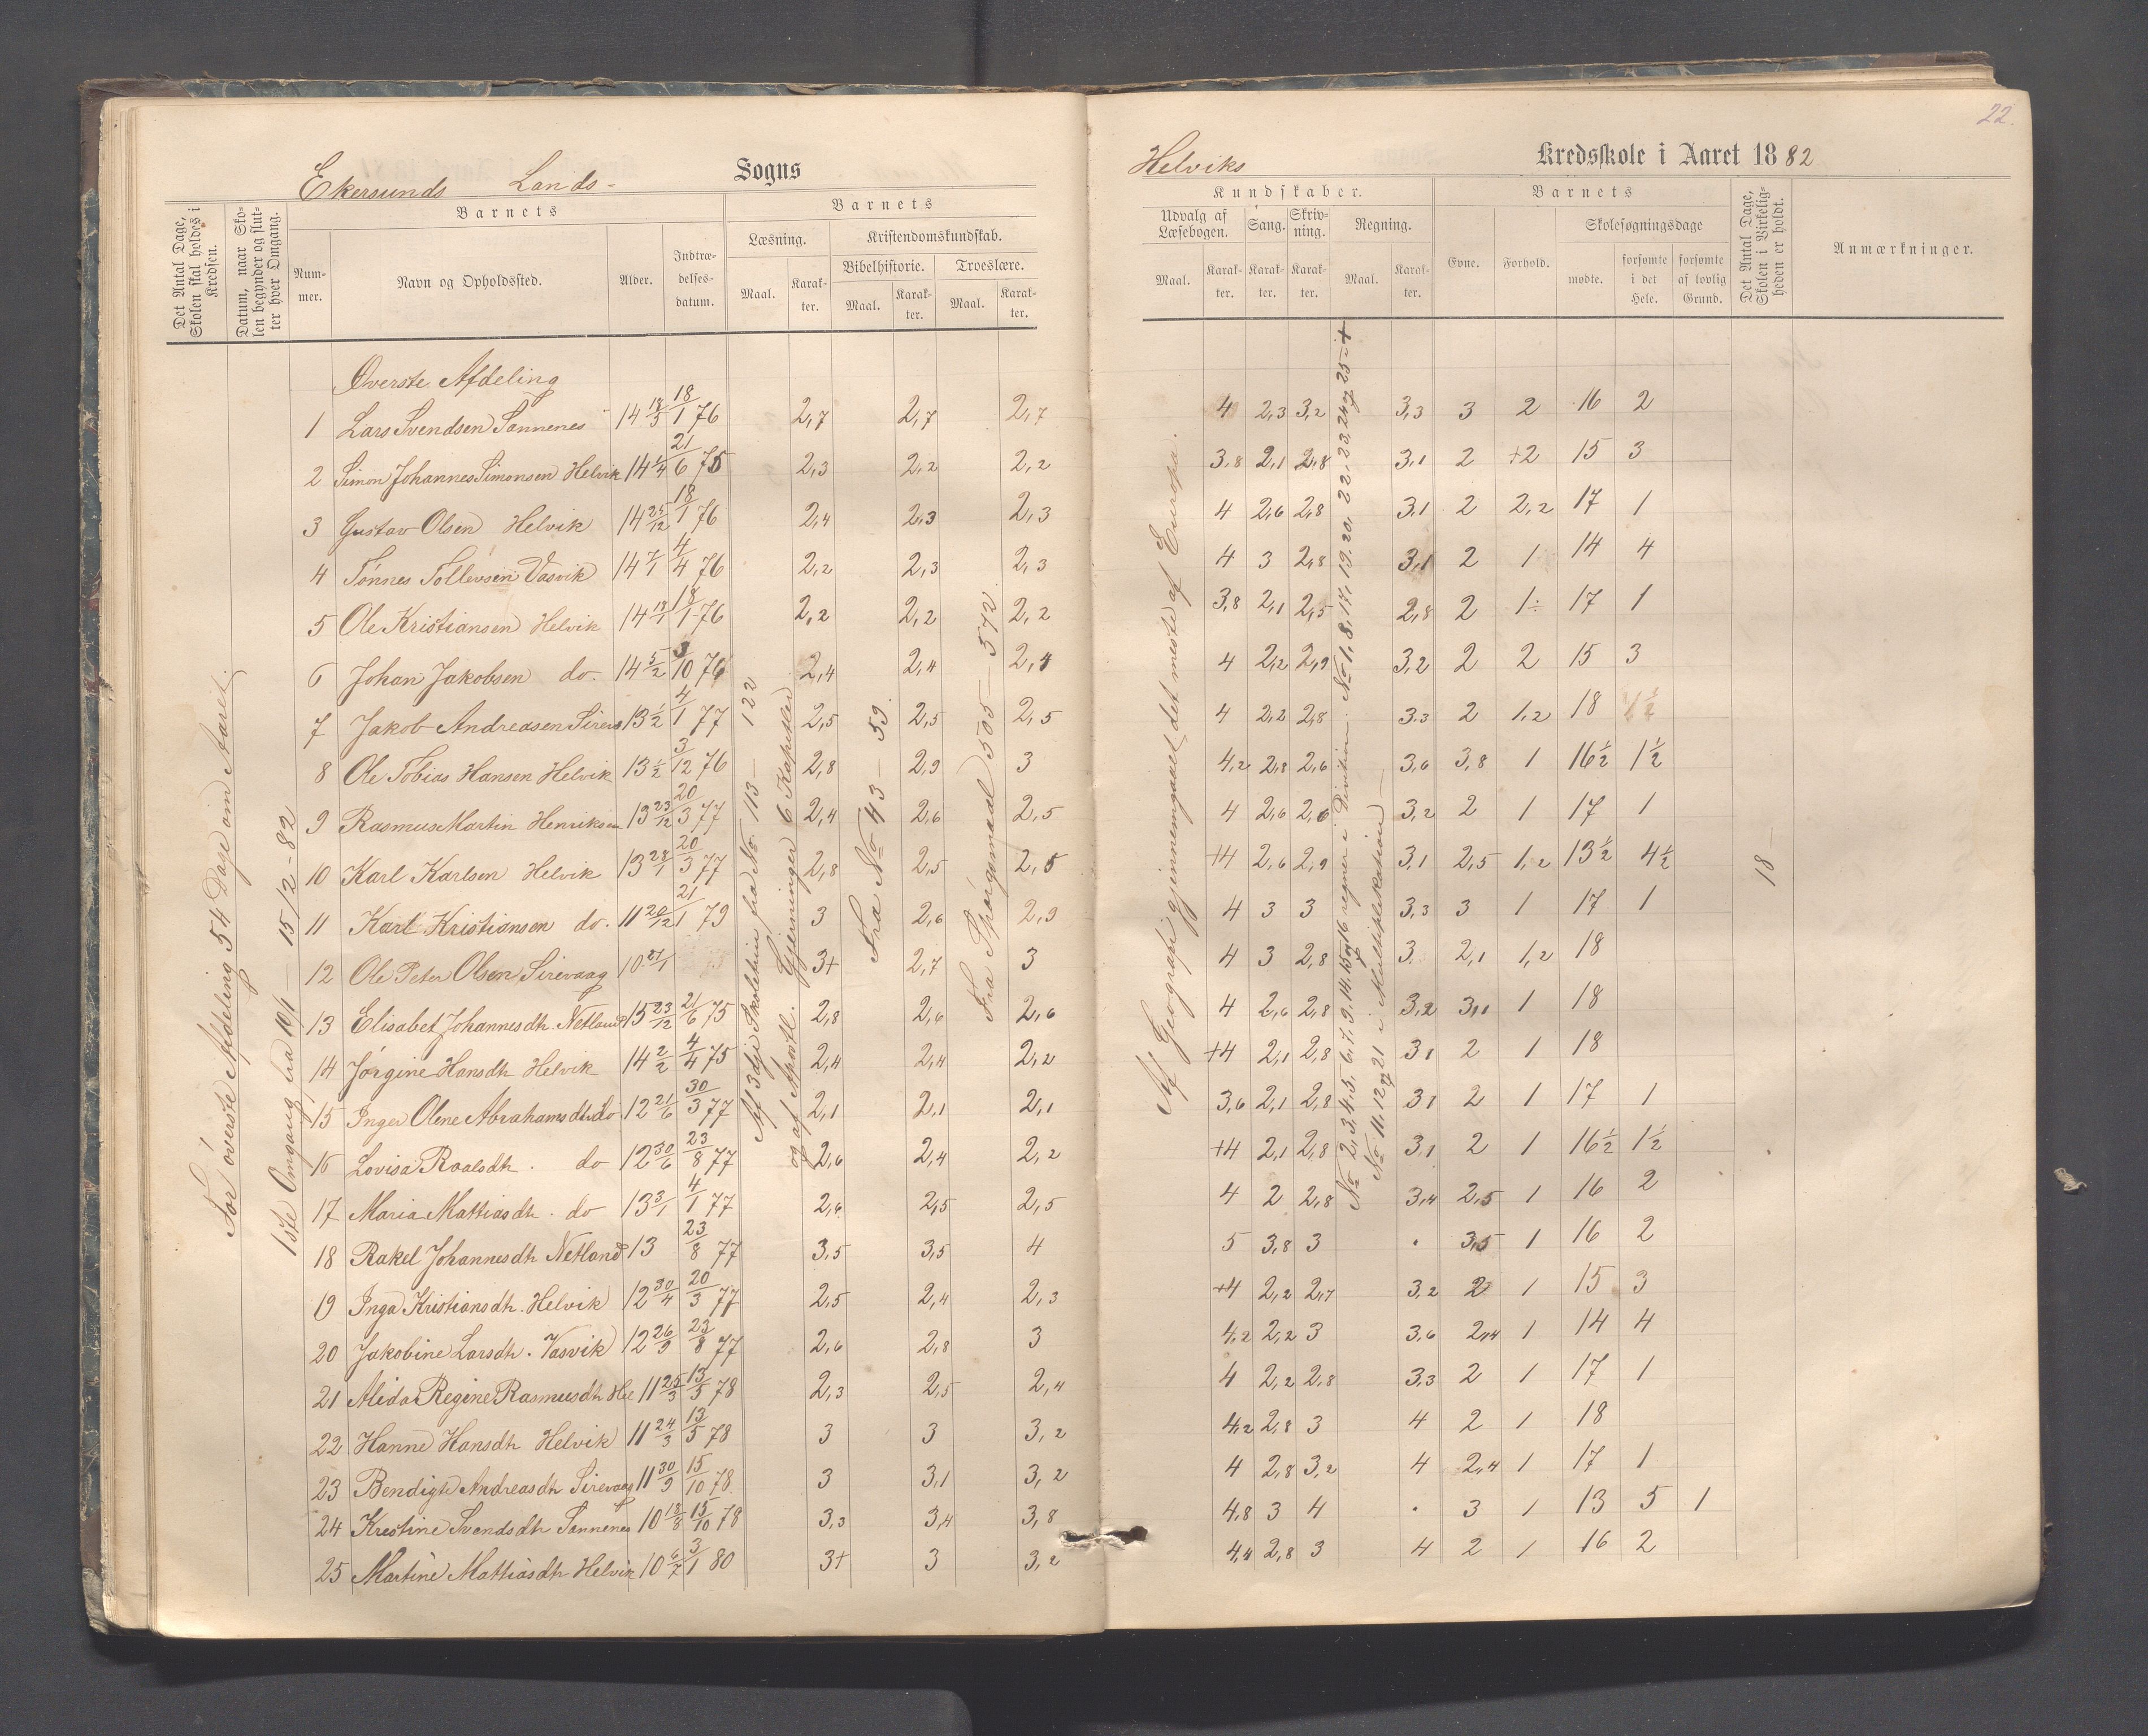 22.
Ekersunds Lands- Sogns
Helviks Kredsskole i Aaret 1882
Det Antal Dage, Skolen skal holdes i Kredsen.
Datum, naar Skolen begynder og slutter hver Omgang.
Barnets
Nummer.
Navn og Opholdssted.
Alder.
Indtrædelsesdatum.
Barnets
Læsning.
Maal.
Karakter.
Kristendomskundskab.
Bibelhistorie.
Maal.
Karakter.
Troeslære.
Maal.
Karakter.
Kundskaber.
Udvalg af Læsebogen.
Maal.
Karakter.
Sang.
Karakter.
Skrivning.
Karakter.
Regning.
Maal.
Karakter.
Barnets
Evne.
Forhold.
Skolesøgningsdage
mødte.
forsømte i det Hele.
forsømte af lovlig Grund.
Det Antal Dage, Skolen i Virkeligheden er holdt.
Anmærkninger.
For øverste Afdeling 54 Dage om Aaret
1ste Omgang fra 10/1 — 15/2 - 82
Af 3dje Skoletrin fra No 113 — 122
og af Apostl. Gjerninger 6 Kapitler
Fra No 43 — 59.
Fra Spørgsmaal 505 — 572
Af Geografi gjennemgaaet det meste af Europa.
No 2, 3, 4, 5, 6, 7, 9, 14, 15 og 16 regner i Division. No 1, 8, 17, 19, 20, 22, 23, 24 og 25 - +
No 11, 12 og 21 i Multiplikation
18 —
Øverste Afdeling
1 Lars Svendsen Sannenes 14 18/3 18/1 76 2,7 2,7 2,7 4 2,3 3,2 3,3 3 2 16 2
2 Simon Johannes Simonsen Helvik 14 1/4 21/6 75 2,3 2,2 2,2 3,8 2,1 2,8 3,1 2 +2 15 3
3 Gustav Olsen Helvik 14 25/12 18/1 76 2,4 2,3 2,3 4 2,6 2,8 3,1 2 2,2 17 1
4 Tønnes Tollevsen Vasvik 14 7/1 4/4 76 2,2 2,3 2,3 4 3 2,8 3,1 2 1 14 4
5 Ole Kristiansen Helvik 14 18/1 18/1 76 2,2 2,2 2,2 3,8 2,1 2,5 2,8 2 1÷ 17 1
6 Johan Jakobsen do. 14 5/2 3/10 76 2,4 2,4 2,4 4 2,2 2,9 3,2 2 2 15 3
7 Jakob Andreasen Sireva 13 1/2 4/1 77 2,5 2,5 2,5 4 2,2 2,8 3.3 2 1,2 18
8 Ole Tobias Hansen Helvik 13 1/2 3/12 76 2,8 2,9 3 4,2 2,8 2,6 3,6 3,8 1 16½ 1½
9 Rasmus Martin Henriksen 13 23/12 20/3 77 2,4 2,6 2,5 4 2,6 2,6 3,2 2 1 17 1
10 Karl Karlsen Helvik 13 28/1 20/3 77 2,8 2,5 2,5 +4 2,6 2,9 3,1 2,5 1,2 13½ 4½
11 Karl Kristiansen do. 11 20/12 21/1 79 3 2,6 2,9 4 3 3 3,3 3 1 17 1
12 Ole Peter Olsen Sirevaag 10 27/1 3+ 2,7 3 4 3 2,8 3. 2,1 1,2 18
13 Elisabet Johannesdh. Netland 15 23/12 21/6 75 2,8 2,6 2,6 4 2,6 2,8 3,2 3,1 1 18
14 Jørgine Hansdh Helvik 14 2/2 4/4 75 2,4 2,4 2,2 +4 2,1 2,8 3,1 2 1 18
15 Inger Oline Abrahamsdh. do 12 21/6 30/3 77 2,1 2,1 2,1 3,6 2,1 2,8 3,1 2 1 17 1
16 Lovisa Roalsdh. do 12 30/6 23/8 77 2,6 2,4 2,2 +4 2,1 2,8 3,1 2 1 16½ 1½
17 Maria Mattiasdh. do 13 3/1 4/1 77 2,6 2,5 2,5 4 2 2,8 3,4 2,5 1 16 2
18 Rakel Johannesdh Netland 13 23/8 77 3,5 3,5 4 5 3,8 3 · 3,5 1 16 2
19 Inga Kristiansdh. Helvik 12 30/4 20/3 77 2,5 2,4 2,3 +4 2,2 2,7 3,2 2 1 15 3
20 Jakobine Larsdh. Vasvik 12 26/9 23/8 77 2,6 2,8 3 4,2 2,2 3 3,6 2,4 1 14 4
21 Alida Regine Rasmusdh Hel 11 25/3 13/5 78 2,3 2,5 2,4 4 2,2 2,8 3,3 2 1 17 1
22 Hanne Hansdh Helvik 11 24/3 13/5 78 3 3 3,2 4,2 2,8 3 4 2 1 18
23 Bendigte Andreasdh Sirevaag 11 30/9 15/10 78. 3 3,1 3,2 4 2,8 3,2 4 2,4 1 17 1
24 Kristine Svendsdh Sannenes 10 18/8 15/10 78 3,3 3,4 3,8 4,8 3 4 · 3 1 13 5 1
25 Martine Mattiasdh Helvik 10 6/7 3/1 80 3+ 3 3,2 4,4 2,8 3 4 2 1 16 2